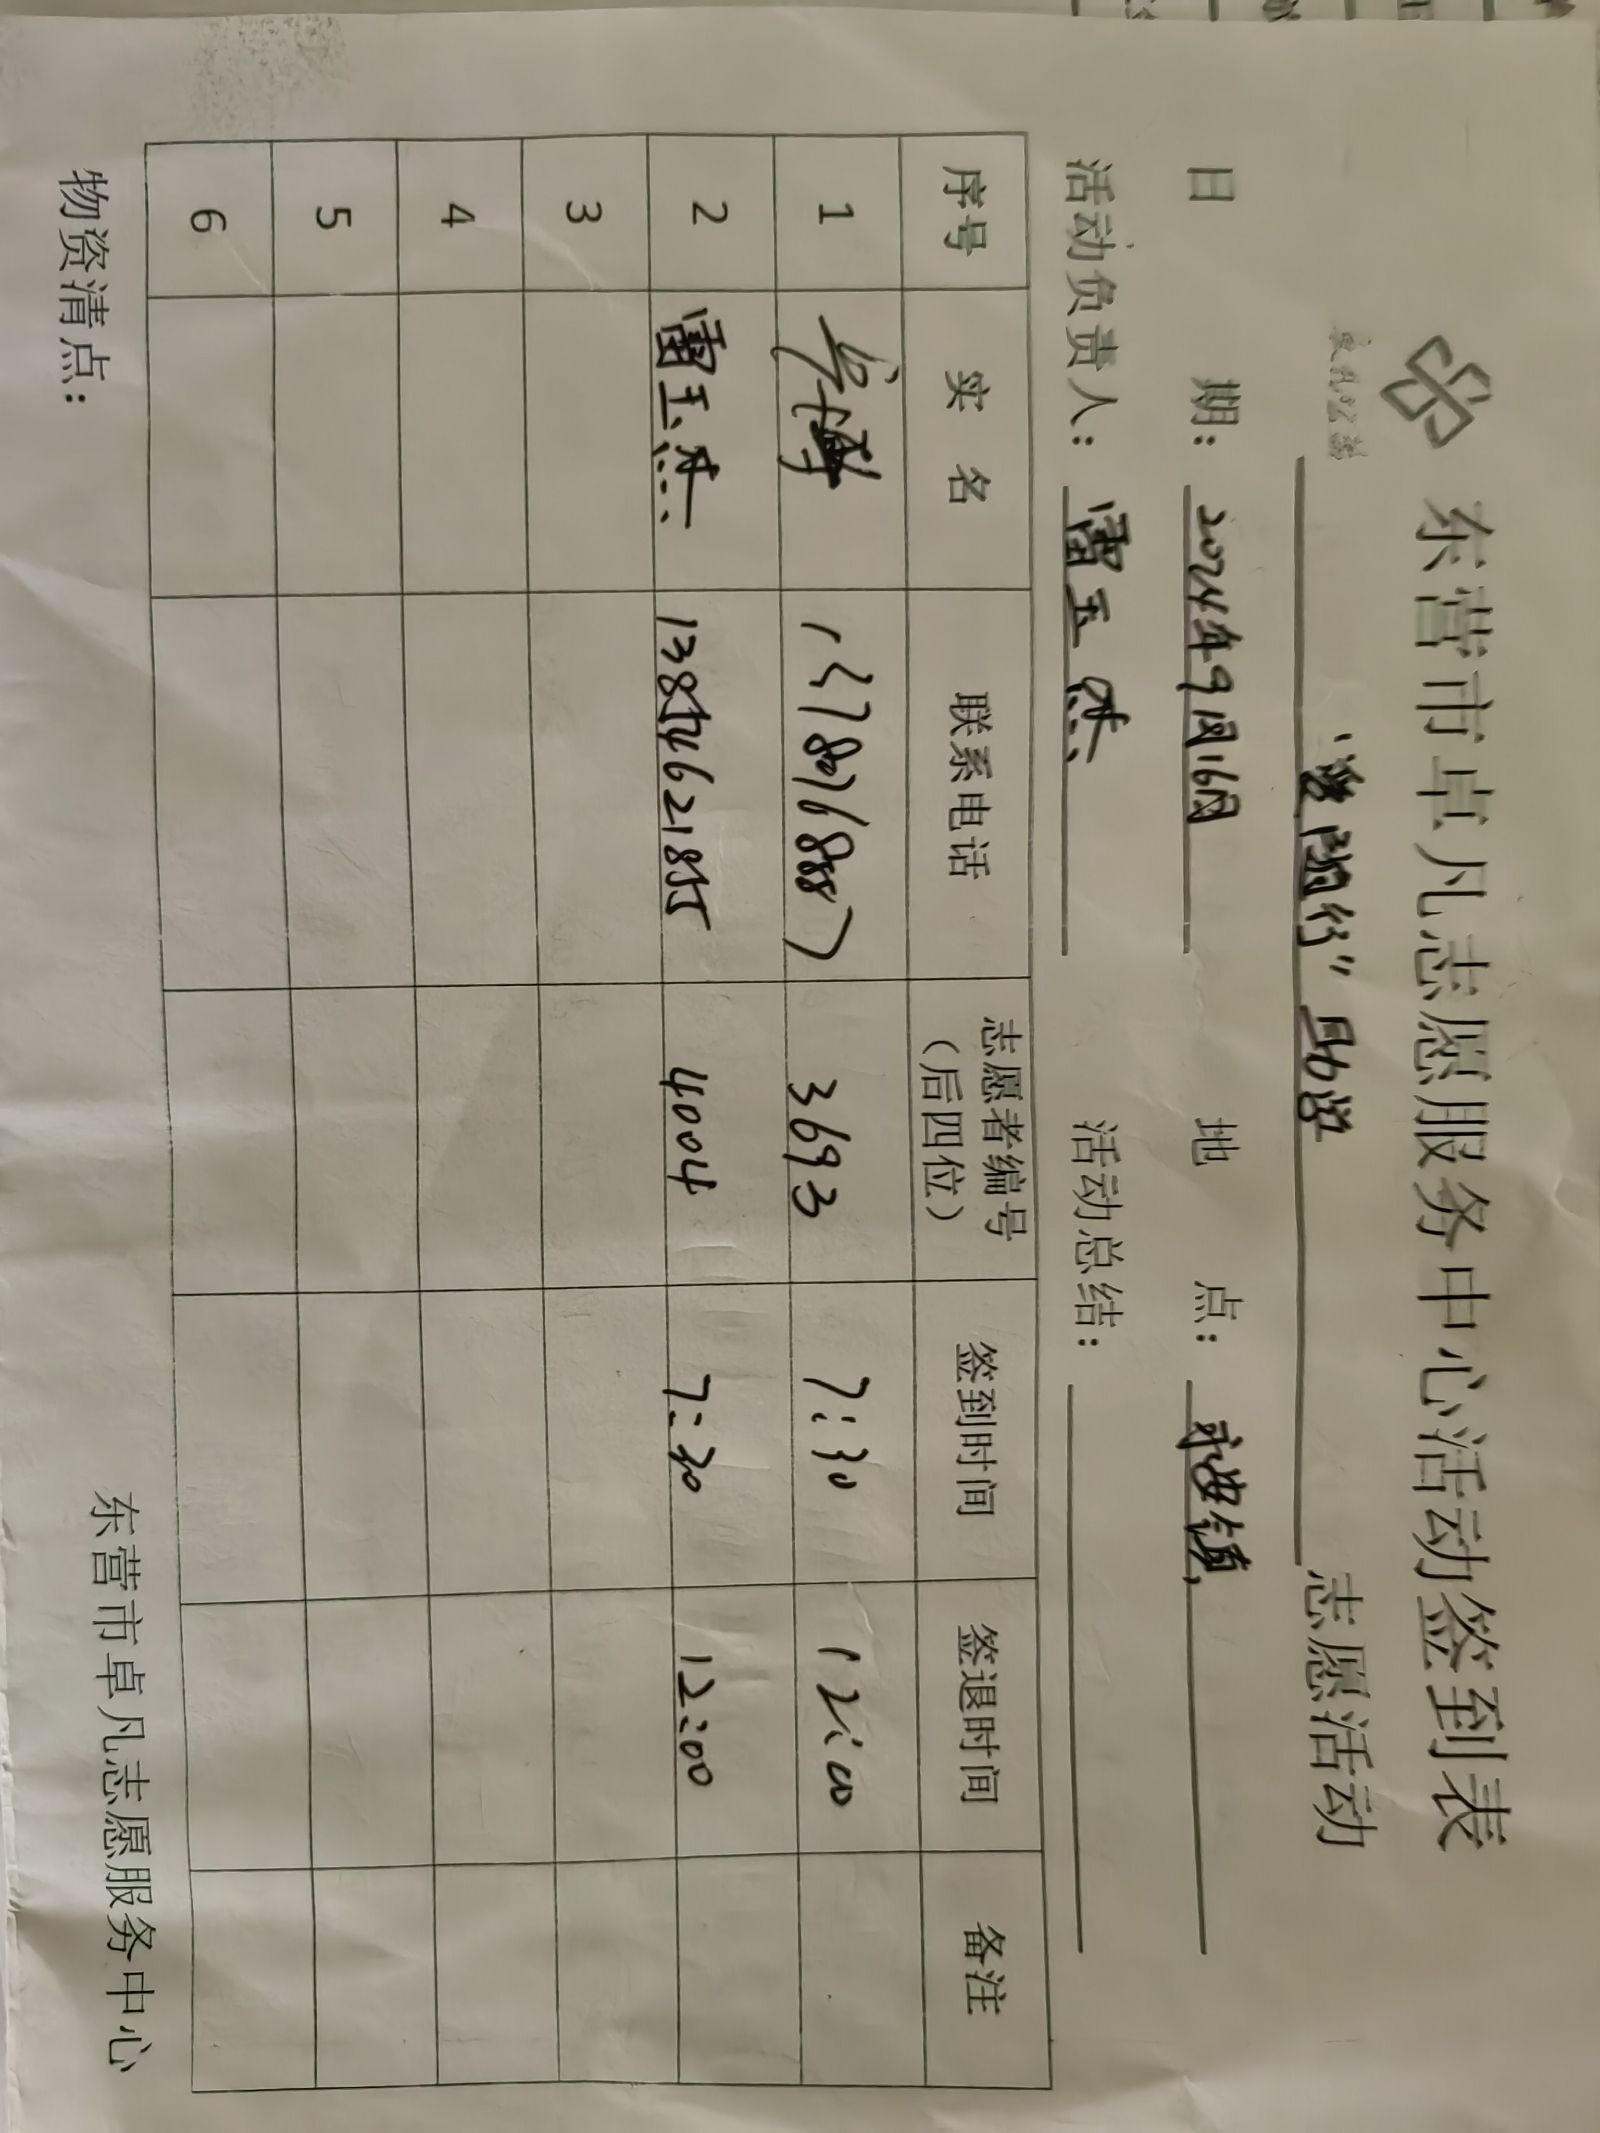 东营市卓凡志愿服务中心活动签到表
"爱随行"助学 志愿活动
日 期：2024年9月16日 地 点：永安镇
活动负责人：雷玉杰 活动总结：
序号 实 名 联系电话 志愿者编号（后四位） 签到时间 签退时间 备注
1 3693 7:30 12:00
2 雷玉杰 13854621855 4004 7:30 12:00
3
4
5
6
物资清点：
东营市卓凡志愿服务中心